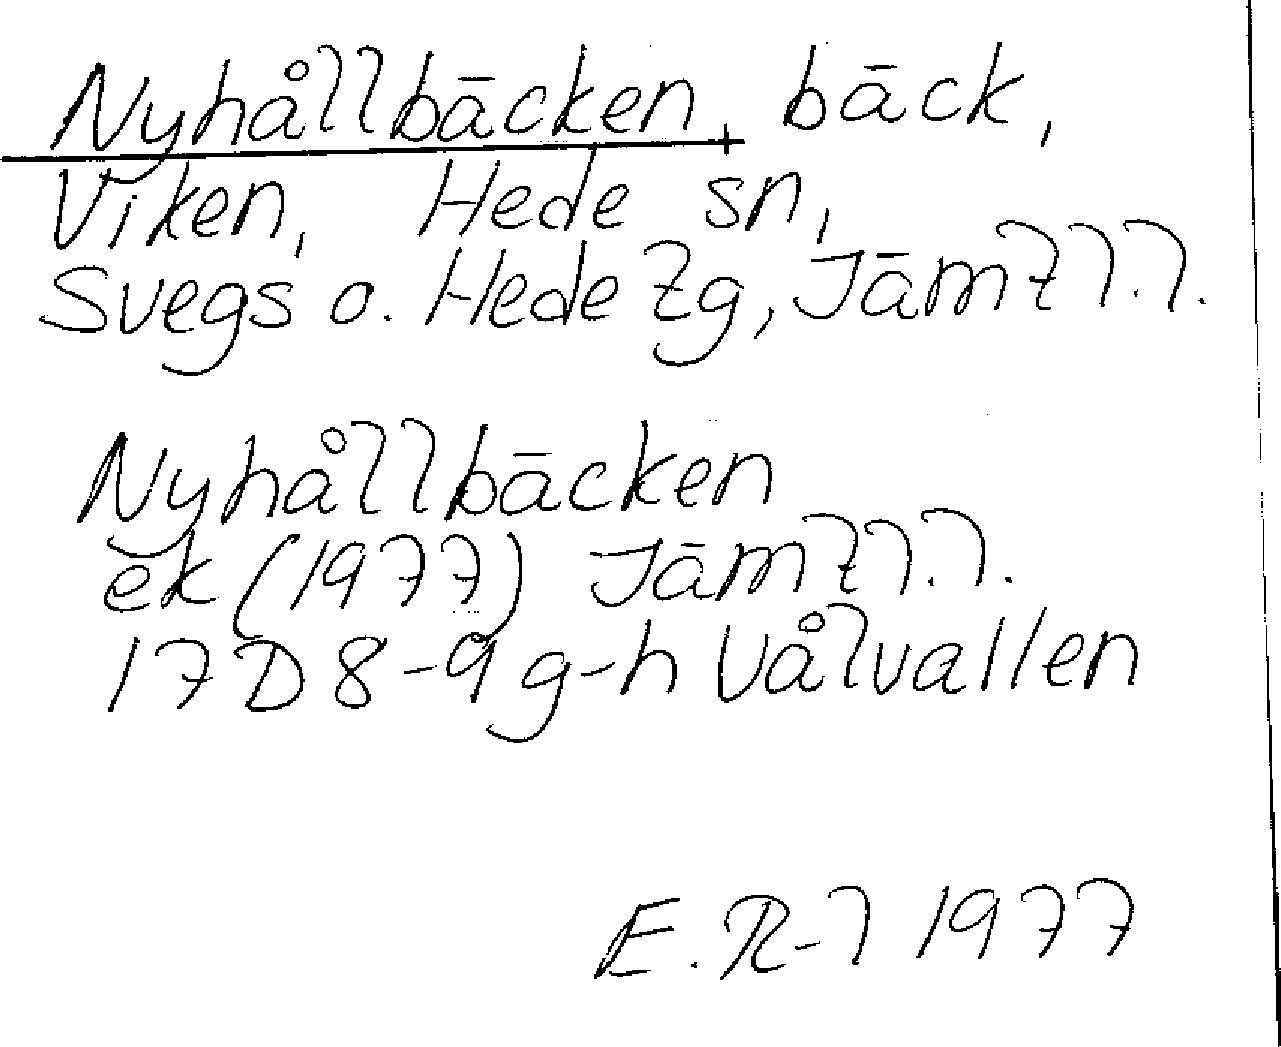 Nyhållbäcken, bäck,
Viken, Hede sn,
Svegs o. Hede tg, Jämtl.l.
Nyhållbäcken
ek (1977) Jämtl.l.
17D 8-9 g-h Vålvallen
E.R-l 1977